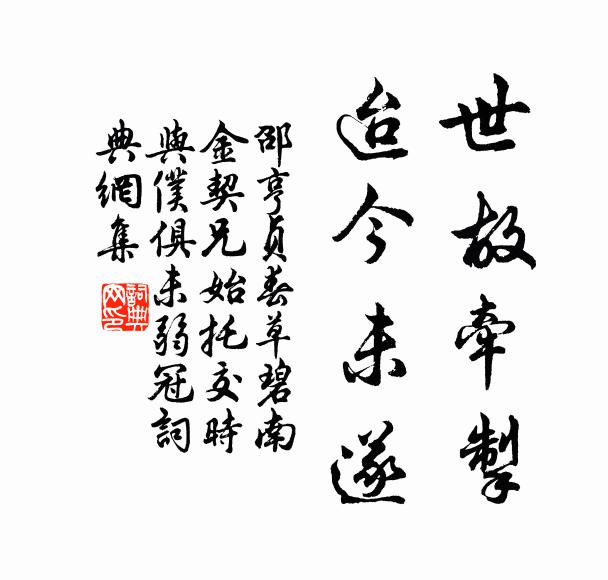 世故牽掣
迨今未遂
邵亨貞春草碧南
金契兄始托交時
與僕俱未弱冠詞
典網集
詞典網印